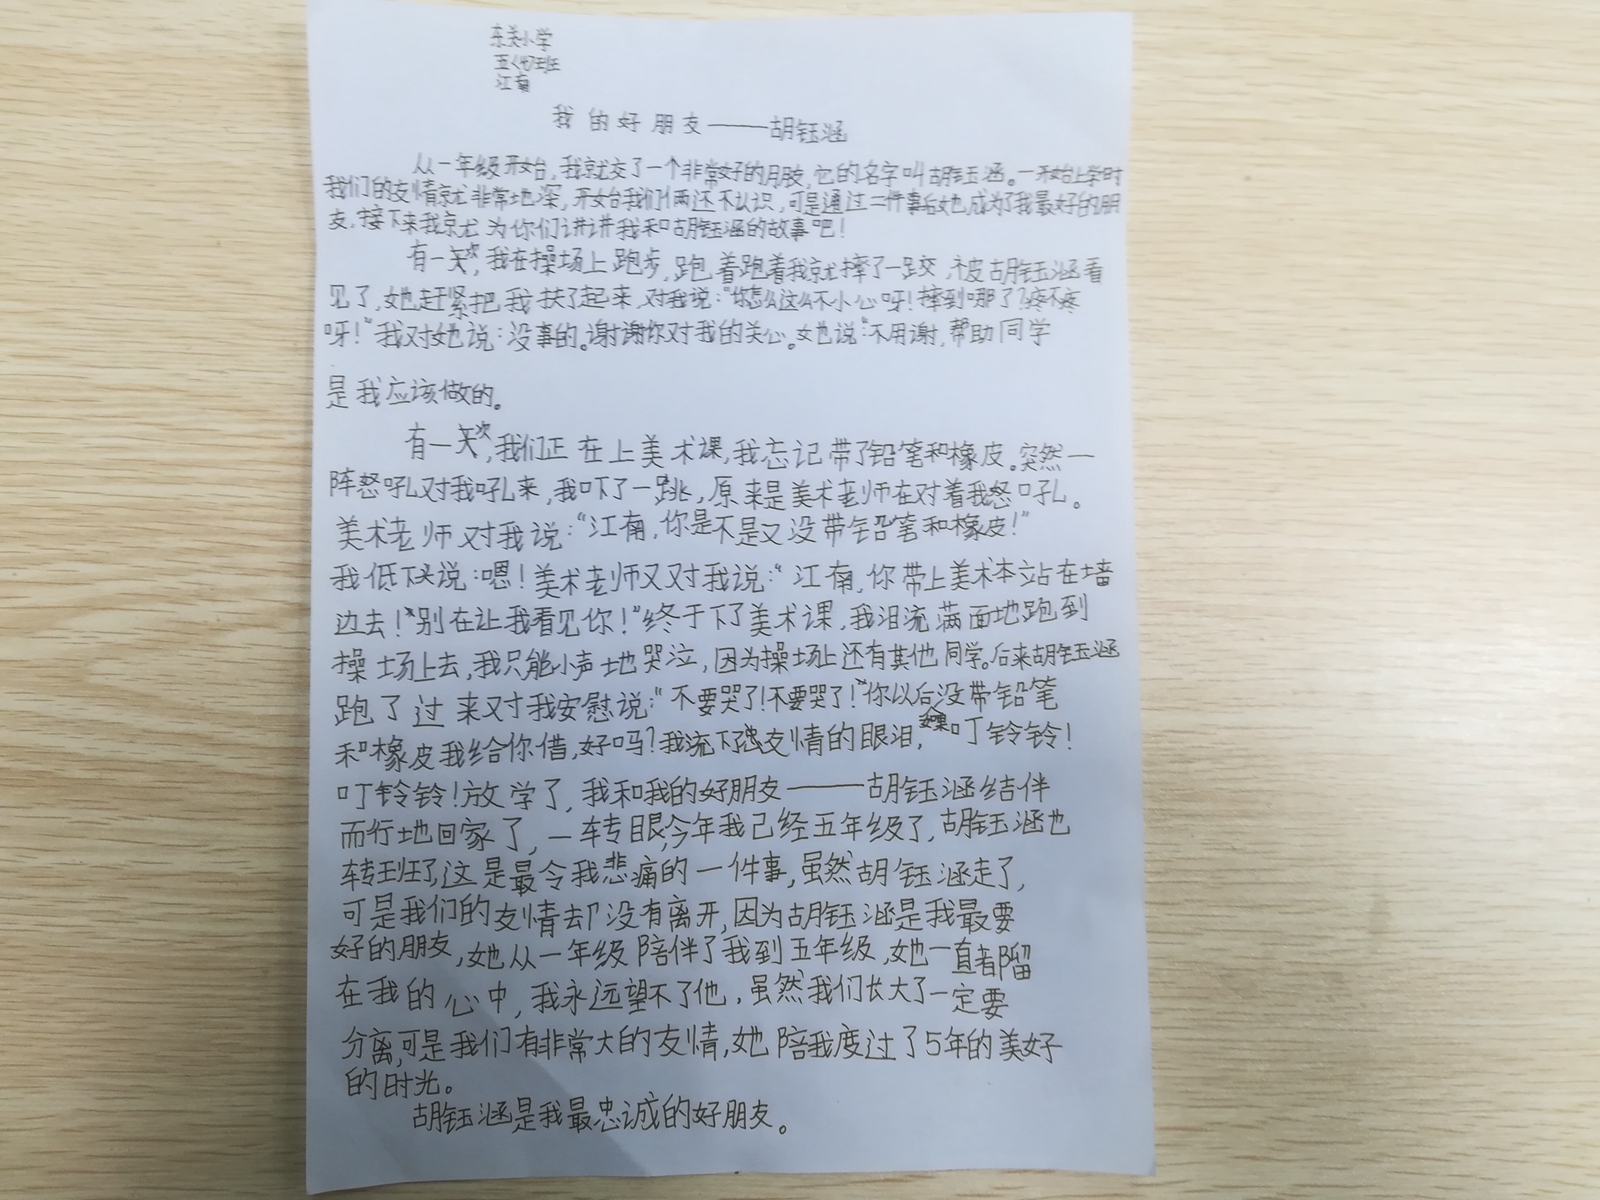 东美小学
五(4)班
江南
我的好朋友——胡钰涵
从一年级开始，我就交了一个非常好的朋友，它的名字叫胡钰涵。一开始上学时
我们的友情就非常地深，开始我们俩还不认识，可是通过二件事后她成为了我最好的朋
友，接下来我就为你们讲讲我和胡钰涵的故事吧！
有一次，我在操场上跑步，跑着跑着我就摔了一跤，被胡钰涵看
见了，她赶紧把我扶了起来，对我说：“你怎么这么不小心呀！摔到哪了？疼不疼
呀！”我对她说：没事的。谢谢你对我的关心。她说：“不用谢，帮助同学
是我应该做的。
有一次，我们正在上美术课，我忘记带了铅笔和橡皮。突然一
阵怒吼对我吼来，我吓了一跳，原来是美术老师在对着我怒吼。
美术老师对我说：“江南，你是不是又没带铅笔和橡皮！”
我低下头说：嗯！美术老师又对我说：“江南，你带上美术本站在墙
边去！”别在让我看见你！”终于下了美术课，我泪流满面地跑到
操场上去，我只能小声地哭泣，因为操场上还有其他同学。后来胡钰涵
跑了过来对我安慰说：“不要哭了！不要哭了！”你以后没带铅笔
和橡皮我给你借，好吗？我流下感友情的眼泪，“叮铃铃！
叮铃铃！放学了，我和我的好朋友——胡钰涵结伴
而行地回家了，一转眼，今年我已经五年级了，胡钰涵也
转班了，这是最令我悲痛的一件事，虽然胡钰涵走了，
可是我们的友情却没有离开，因为胡钰涵是我最要
好的朋友，她从一年级陪伴了我到五年级，她一直都留
在我的心中，我永远望不了他，虽然我们长大了一定要
分离，可是我们有非常大的友情，她陪我度过了5年的美好
的时光。
胡钰涵是我最忠诚的好朋友。